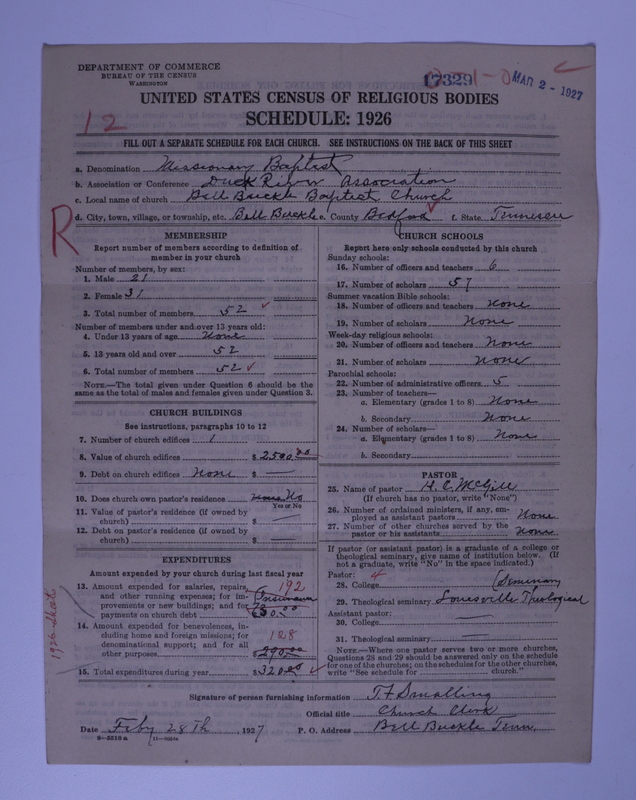 DEPARTMENT OF COMMERCE
BUREAU OF THE CENSUS
WASHINGTON
17329
MAR 2 - 1927
UNITED STATES CENSUS OF RELIGIOUS BODIES
SCHEDULE: 1926
12
FILL OUT A SEPARATE SCHEDULE FOR EACH CHURCH. SEE INSTRUCTIONS ON THE BACK OF THIS SHEET
a. Denomination Missionary Baptist
b. Association or Conference Duck River Association
c. Local name of church Bell Buckle Baptist Church
d. City, town, village, or township, etc. Bell Buckle e. County Bedford f. State Tennessee
R
MEMBERSHIP
Report number of members according to definition of
member in your church
Number of members, by sex:
1. Male 21
2. Female 31
3. Total number of members 52
Number of members under and over 13 years old:
4. Under 13 years of age None
5. 13 years old and over 52
6. Total number of members 52
NOTE.—The total given under Question 6 should be the
same as the total of males and females given under Question 3.
CHURCH BUILDINGS
See instructions, paragraphs 10 to 12
7. Number of church edifices 1
8. Value of church edifices $ 2500.00
9. Debt on church edifices None $
10. Does church own pastor's residence No
Yes or No
11. Value of pastor's residence (if owned by
church) $
12. Debt on pastor's residence (if owned by
church) $
EXPENDITURES
Amount expended by your church during last fiscal year
13. Amount expended for salaries, repairs, $ 192
and other running expenses; for im-
provements or new buildings; and for
payments on church debt
14. Amount expended for benevolences, in-
cluding home and foreign missions; for 128
denominational support; and for all
other purposes
15. Total expenditures during year $ 320.00
CHURCH SCHOOLS
Report here only schools conducted by this church
Sunday schools:
16. Number of officers and teachers 6
17. Number of scholars 57
Summer vacation Bible schools:
18. Number of officers and teachers None
19. Number of scholars None
Week-day religious schools:
20. Number of officers and teachers None
21. Number of scholars None
Parochial schools:
22. Number of administrative officers 5
23. Number of teachers—
a. Elementary (grades 1 to 8) None
b. Secondary None
24. Number of scholars—
a. Elementary (grades 1 to 8) None
b. Secondary
PASTOR
25. Name of pastor H. C. McGill
(If church has no pastor, write "None")
26. Number of ordained ministers, if any, em-
ployed as assistant pastors None
27. Number of other churches served by the
pastor or his assistants None
If pastor (or assistant pastor) is a graduate of a college or
theological seminary, give name of institution below. (If
not a graduate, write "No" in the space indicated.)
Pastor: 4
28. College (Seminary
29. Theological seminary Louesville Theological
Assistant pastor:
30. College
31. Theological seminary
NOTE.—Where one pastor serves two or more churches,
Questions 28 and 29 should be answered only on the schedule
for one of the churches; on the schedules for the other churches,
write "See schedule for church."
Signature of person furnishing information T. F. Smalling
Official title Church Clerk
Date Feby 28th, 1927 P. O. Address Bell Buckle Tenn.